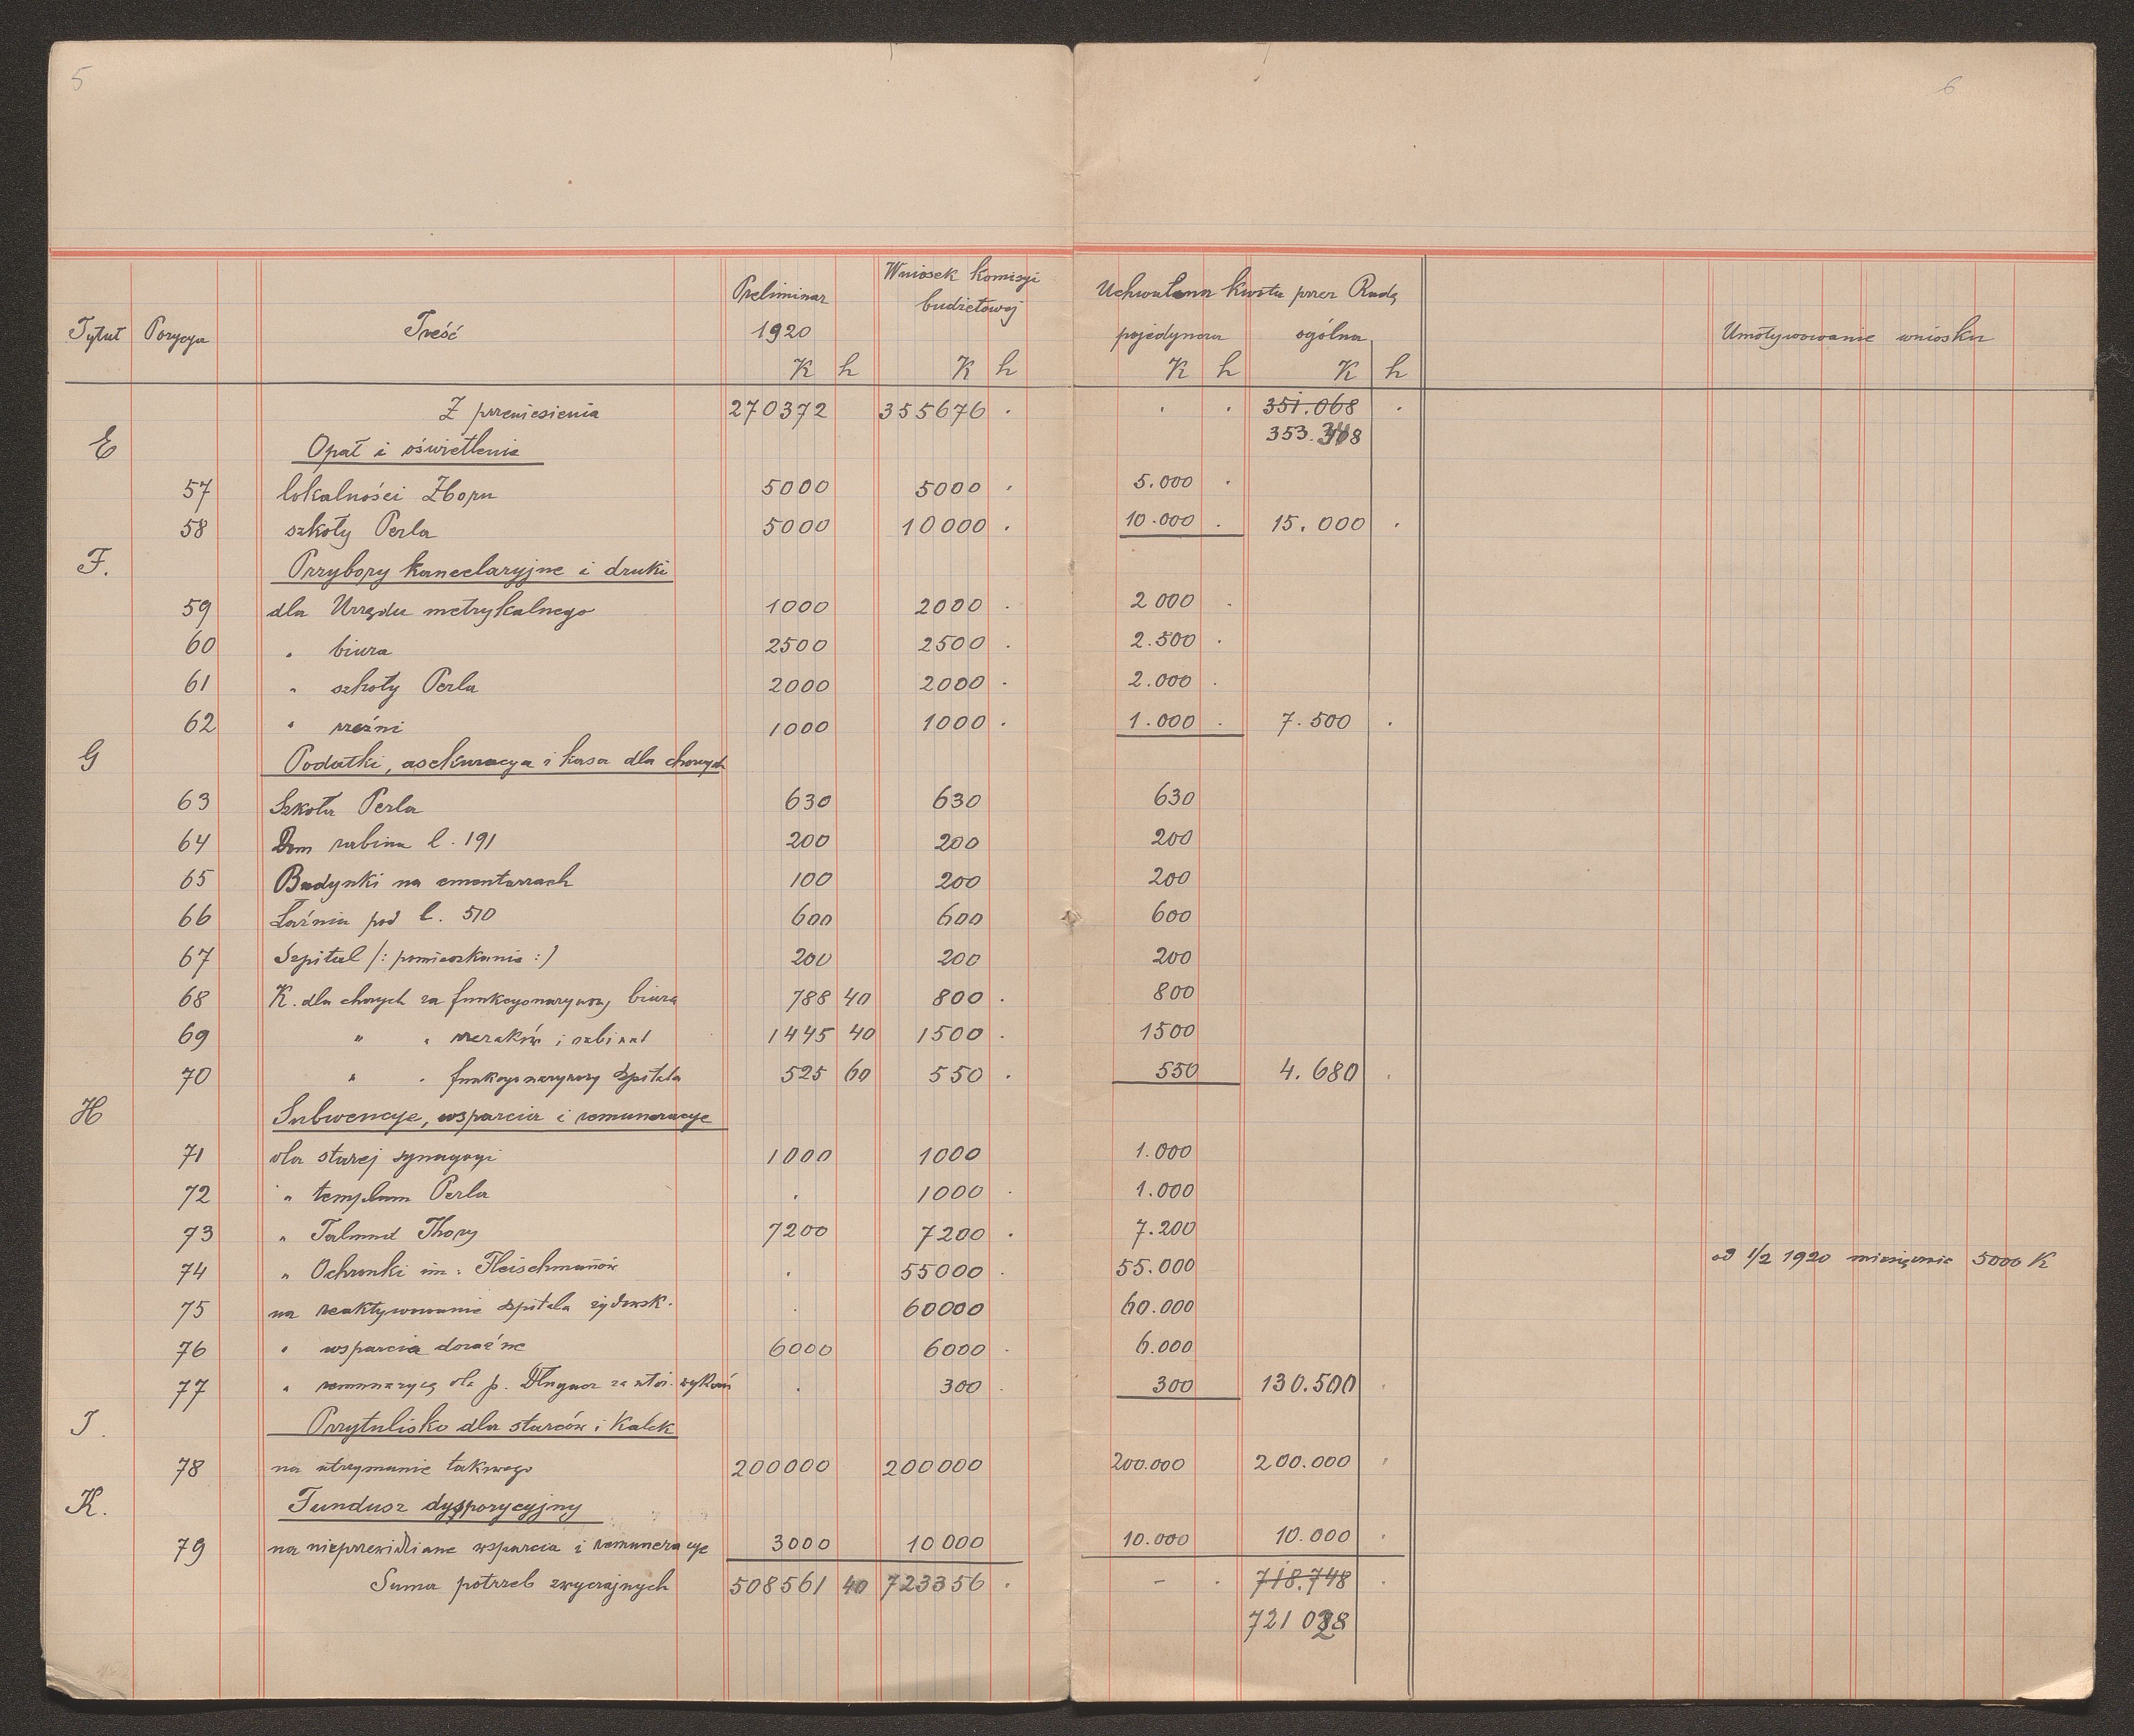 5
6
Tytuł Pozycya Treść Preliminar 1920 K h Wniosek komisyi budżetowej K h Uchwalona kwota przez Radę pojedyncza K h ogólna K h Umotywowanie wniosku
Z przeniesienia 270372 355676 . . . 351.068 .
353.
E Opał i oświetlenie
57 lokalności Zboru 5000 5000 . 5.000 .
58 szkoły Perla 5000 10000 . 10.000 . 15.000 .
F. Przybory kancelaryjne i druki
59 dla Urzędu metrykalnego 1000 2000 . 2000 .
60 " biura 2500 2500 . 2.500 .
61 " szkoły Perla 2000 2000 . 2.000 .
62 " rzeźni 1000 1000 . 1.000 . 7.500 .
G Podatki, asekuracya i kasa dla chorych
63 Szkoła Perla 630 630 630
64 Dom rabina l. 191 200 200 200
65 Budynki na cmentarzach 100 200 200
66 Łaźnia pod l. 510 600 600 600
67 Szpital /: pomieszkanie :/ 200 200 200
68 K. dla chorych za funkcyonaryuszy biura 788 40 800 . 800
69 " " rzezaków i rabinat 1445 40 1500 . 1500
70 " " funkcyonaryuszy szpitala 525 60 550 . 550 4.680 .
H Subwencye, wsparcia i remuneracye
71 dla starej synagogi 1000 1000 1.000
72 " templum Perla . 1000 . 1.000
73 " Talmud Thory 7200 7200 . 7.200
74 " Ochronki im. Fleischmanów . 55000 . 55.000 od 1/2 1920 miesięcznie 5000 K
75 na reaktywowanie szpitala żydowsk. . 60000 60.000
76 " wsparcia doraźne 6000 6000 . 6.000
77 " remuneracyę dla p. Długacz za . 300 . 300 130.500 .
I. Przytulisko dla starców i Kalek
78 na utrzymanie takowego 200000 200000 200.000 200.000 .
K. Fundusz dyspozycyjny
79 na nieprzewidziane wsparcia i remuneracye 3000 10000 10.000 10.000 .
Suma potrzeb zwyczajnych 508561 40 723356 . - . 718.748 .
721